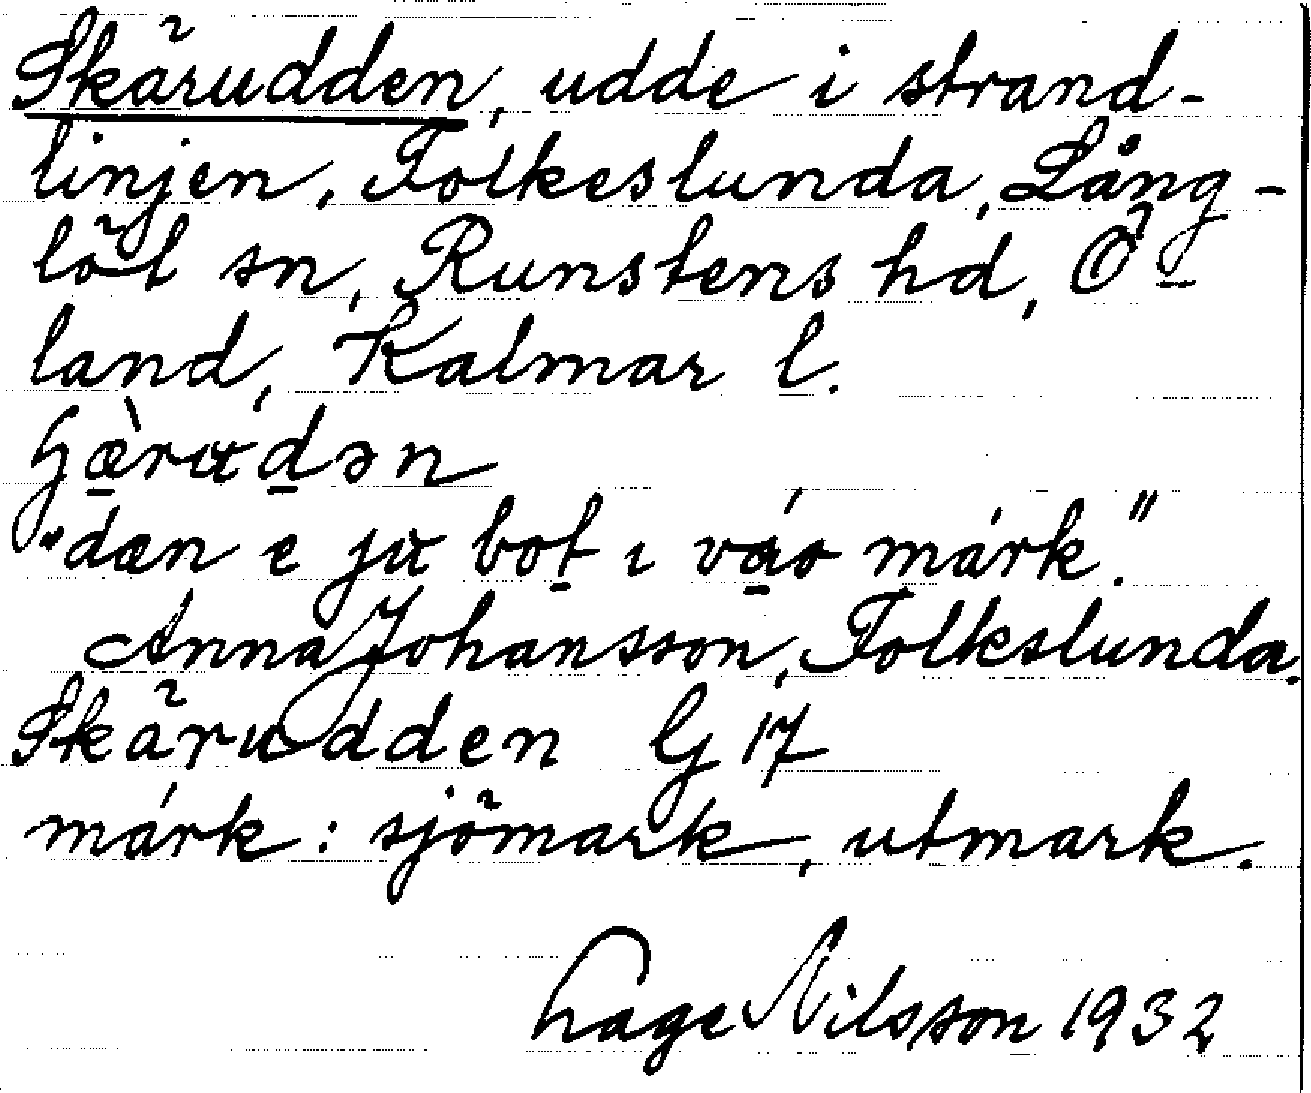 Skärudden, udde i strand-
linjen, Folkeslunda, Lång-
löt sn, Runstens hd, Ö-
land, Kalmar l.
"dæn e ju bot ı våo márk."
Anna Johansson, Folkslunda.
Skärudden G 17
márk: sjömark, utmark.
Hage Nilsson 1932